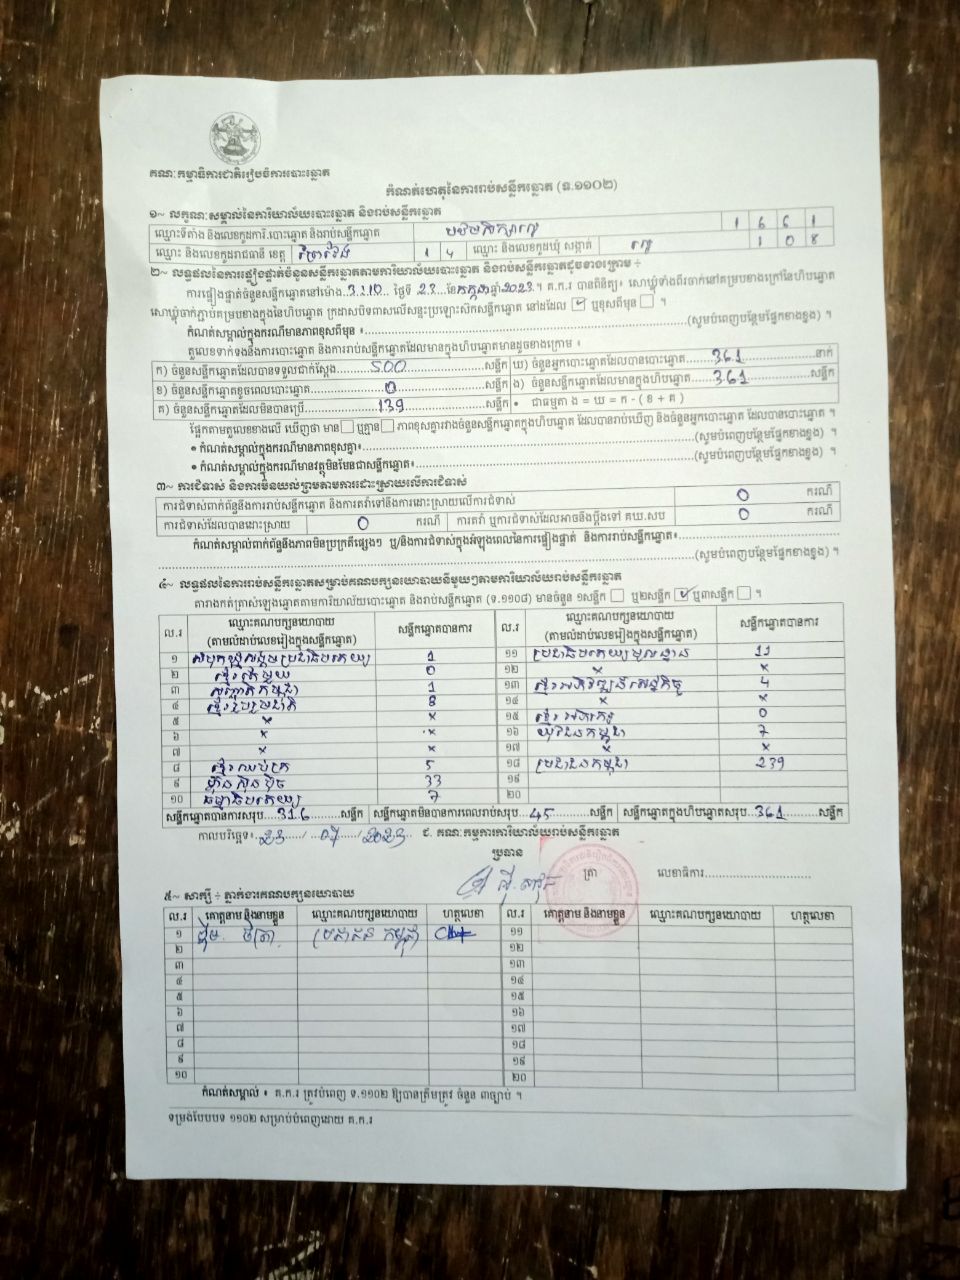 គណៈកម្មាធិការជាតិរៀបចំការបោះឆ្នោត
កំណត់ហេតុនៃការរាប់សន្លឹកឆ្នោត (ទ.១១០២)
១~ លក្ខណៈសម្គាល់នៃការិយាល័យបោះឆ្នោត និងរាប់សន្លឹកឆ្នោត
ឈ្មោះទីតាំង និងលេខកូដការិ.បោះឆ្នោត និងរាប់សន្លឹកឆ្នោត 1661
ឈ្មោះ និងលេខកូដរាជធានី ខេត្ត ព្រៃវែង 14 ឈ្មោះ និងលេខកូដឃុំ សង្កាត់ ល្វេ 108
២~ លទ្ធផលនៃការផ្ទៀងផ្ទាត់ចំនួនសន្លឹកឆ្នោតតាមការិយាល័យបោះឆ្នោត និងរាប់សន្លឹកឆ្នោតដូចខាងក្រោម ÷
ការផ្ទៀងផ្ទាត់ចំនួនសន្លឹកឆ្នោតនៅម៉ោង 3:10 ថ្ងៃទី 23 ខែកក្កដា ឆ្នាំ 2023។ គ.ក.រ បានពិនិត្យ៖ សោឃ្លុំទាំងពីរចាក់នៅគម្របខាងក្រៅនៃហិបឆ្នោត
សោឃ្លុំចាក់ភ្ជាប់គម្របខាងក្នុងនៃហិបឆ្នោត ក្រដាសបិទពាសលើសន្ទះប្រឡោះស៊កសន្លឹកឆ្នោត នៅដដែល ☑ ឬខុសពីមុន ☐ ។
កំណត់សម្គាល់ក្នុងករណីមានភាពខុសពីមុន ៖ (សូមបំពេញបន្ថែមផ្នែកខាងខ្នង) ។
តួលេខទាក់ទងនឹងការបោះឆ្នោត និងការរាប់សន្លឹកឆ្នោតដែលមានក្នុងហិបឆ្នោតមានដូចខាងក្រោម ៖
ក) ចំនួនសន្លឹកឆ្នោតដែលបានទទួលជាក់ស្ដែង 500 សន្លឹក ឃ) ចំនួនអ្នកបោះឆ្នោតដែលបានបោះឆ្នោត 361 នាក់
ខ) ចំនួនសន្លឹកឆ្នោតខូចពេលបោះឆ្នោត 0 សន្លឹក ង) ចំនួនសន្លឹកឆ្នោតដែលមានក្នុងហិបឆ្នោត 361 សន្លឹក
គ) ចំនួនសន្លឹកឆ្នោតដែលមិនបានប្រើ 139 សន្លឹក • ជាធម្មតា ង = ឃ = ក - ( ខ + គ )
ផ្អែកតាមតួលេខខាងលើ ឃើញថា មាន ☐ ឬគ្មាន ☐ ភាពខុសគ្នារវាងចំនួនសន្លឹកឆ្នោតក្នុងហិបឆ្នោត ដែលបានរាប់ឃើញ និងចំនួនអ្នកបោះឆ្នោត ដែលបានបោះឆ្នោត ។
• កំណត់សម្គាល់ក្នុងករណីមានភាពខុសគ្នា៖ (សូមបំពេញបន្ថែមផ្នែកខាងខ្នង) ។
• កំណត់សម្គាល់ក្នុងករណីមានវត្ថុមិនមែនជាសន្លឹកឆ្នោត៖ (សូមបំពេញបន្ថែមផ្នែកខាងខ្នង) ។
៣~ ការជំទាស់ និងការមិនយល់ព្រមតាមការដោះស្រាយលើការជំទាស់
ការជំទាស់ពាក់ព័ន្ធនឹងការរាប់សន្លឹកឆ្នោត និងការតវ៉ាទៅនឹងការដោះស្រាយលើការជំទាស់ 0 ករណី
ការជំទាស់ដែលបានដោះស្រាយ 0 ករណី ការតវ៉ា ឬការជំទាស់ដែលអាចនឹងប្ដឹងទៅ គឃ.សប 0 ករណី
កំណត់សម្គាល់ពាក់ព័ន្ធនឹងភាពមិនប្រក្រតីផ្សេងៗ ឬ/និងការជំទាស់ក្នុងអំឡុងពេលនៃការផ្ទៀងផ្ទាត់ និងការរាប់សន្លឹកឆ្នោត៖
(សូមបំពេញបន្ថែមផ្នែកខាងខ្នង) ។
៤~ លទ្ធផលនៃការរាប់សន្លឹកឆ្នោតសម្រាប់គណបក្សនយោបាយនីមួយៗតាមការិយាល័យរាប់សន្លឹកឆ្នោត
តារាងកត់ត្រាសំឡេងឆ្នោតតាមការិយាល័យបោះឆ្នោត និងរាប់សន្លឹកឆ្នោត (ទ.១១០៨) មានចំនួន ១សន្លឹក ☐ ឬ២សន្លឹក ☑ ឬ៣សន្លឹក ☐ ។
ល.រ ឈ្មោះគណបក្សនយោបាយ (តាមលំដាប់លេខរៀងក្នុងសន្លឹកឆ្នោត) សន្លឹកឆ្នោតបានការ ល.រ ឈ្មោះគណបក្សនយោបាយ (តាមលំដាប់លេខរៀងក្នុងសន្លឹកឆ្នោត) សន្លឹកឆ្នោតបានការ
១ សំបុកឃ្មុំសង្គមប្រជាធិបតេយ្យ 1 ១១ ប្រជាធិបតេយ្យមូលដ្ឋាន 11
២ ខ្មែរតែមួយ 0 ១២ × ×
៣ សញ្ជាតិកម្ពុជា 1 ១៣ ខ្មែរអភិវឌ្ឍន៍សេដ្ឋកិច្ច 4
៤ ខ្មែររួបរួមជាតិ 8 ១៤ × ×
៥ × × ១៥ ខ្មែរអភិរក្ស 0
៦ × × ១៦ យុវជនកម្ពុជា 7
៧ × × ១៧ × ×
៨ ខ្មែរឈប់ក្រ 5 ១៨ ប្រជាជនកម្ពុជា 239
៩ ហ៊្វុនស៊ិនប៉ិច 33 ១៩
១០ ធម្មាធិបតេយ្យ 7 ២០
សន្លឹកឆ្នោតបានការសរុប 316 សន្លឹក សន្លឹកឆ្នោតមិនបានការពេលរាប់សរុប 45 សន្លឹក សន្លឹកឆ្នោតក្នុងហិបឆ្នោតសរុប 361 សន្លឹក
កាលបរិច្ឆេទ៖ 23 / 07 / 2023 ជ. គណៈកម្មការការិយាល័យរាប់សន្លឹកឆ្នោត
ប្រធាន
ត្រា លេខាធិការ
៥~ សាក្សី ÷ ភ្នាក់ងារគណបក្សនយោបាយ
ល.រ គោត្តនាម និងនាមខ្លួន ឈ្មោះគណបក្សនយោបាយ ហត្ថលេខា ល.រ គោត្តនាម និងនាមខ្លួន ឈ្មោះគណបក្សនយោបាយ ហត្ថលេខា
១ ប្រជាជន កម្ពុជា ១១
២ ១២
៣ ១៣
៤ ១៤
៥ ១៥
៦ ១៦
៧ ១៧
៨ ១៨
៩ ១៩
១០ ២០
កំណត់សម្គាល់ ៖ គ.ក.រ ត្រូវបំពេញ ទ.១១០២ ឱ្យបានត្រឹមត្រូវ ចំនួន ៣ច្បាប់ ។
ទម្រង់បែបបទ ១១០២ សម្រាប់បំពេញដោយ គ.ក.រ